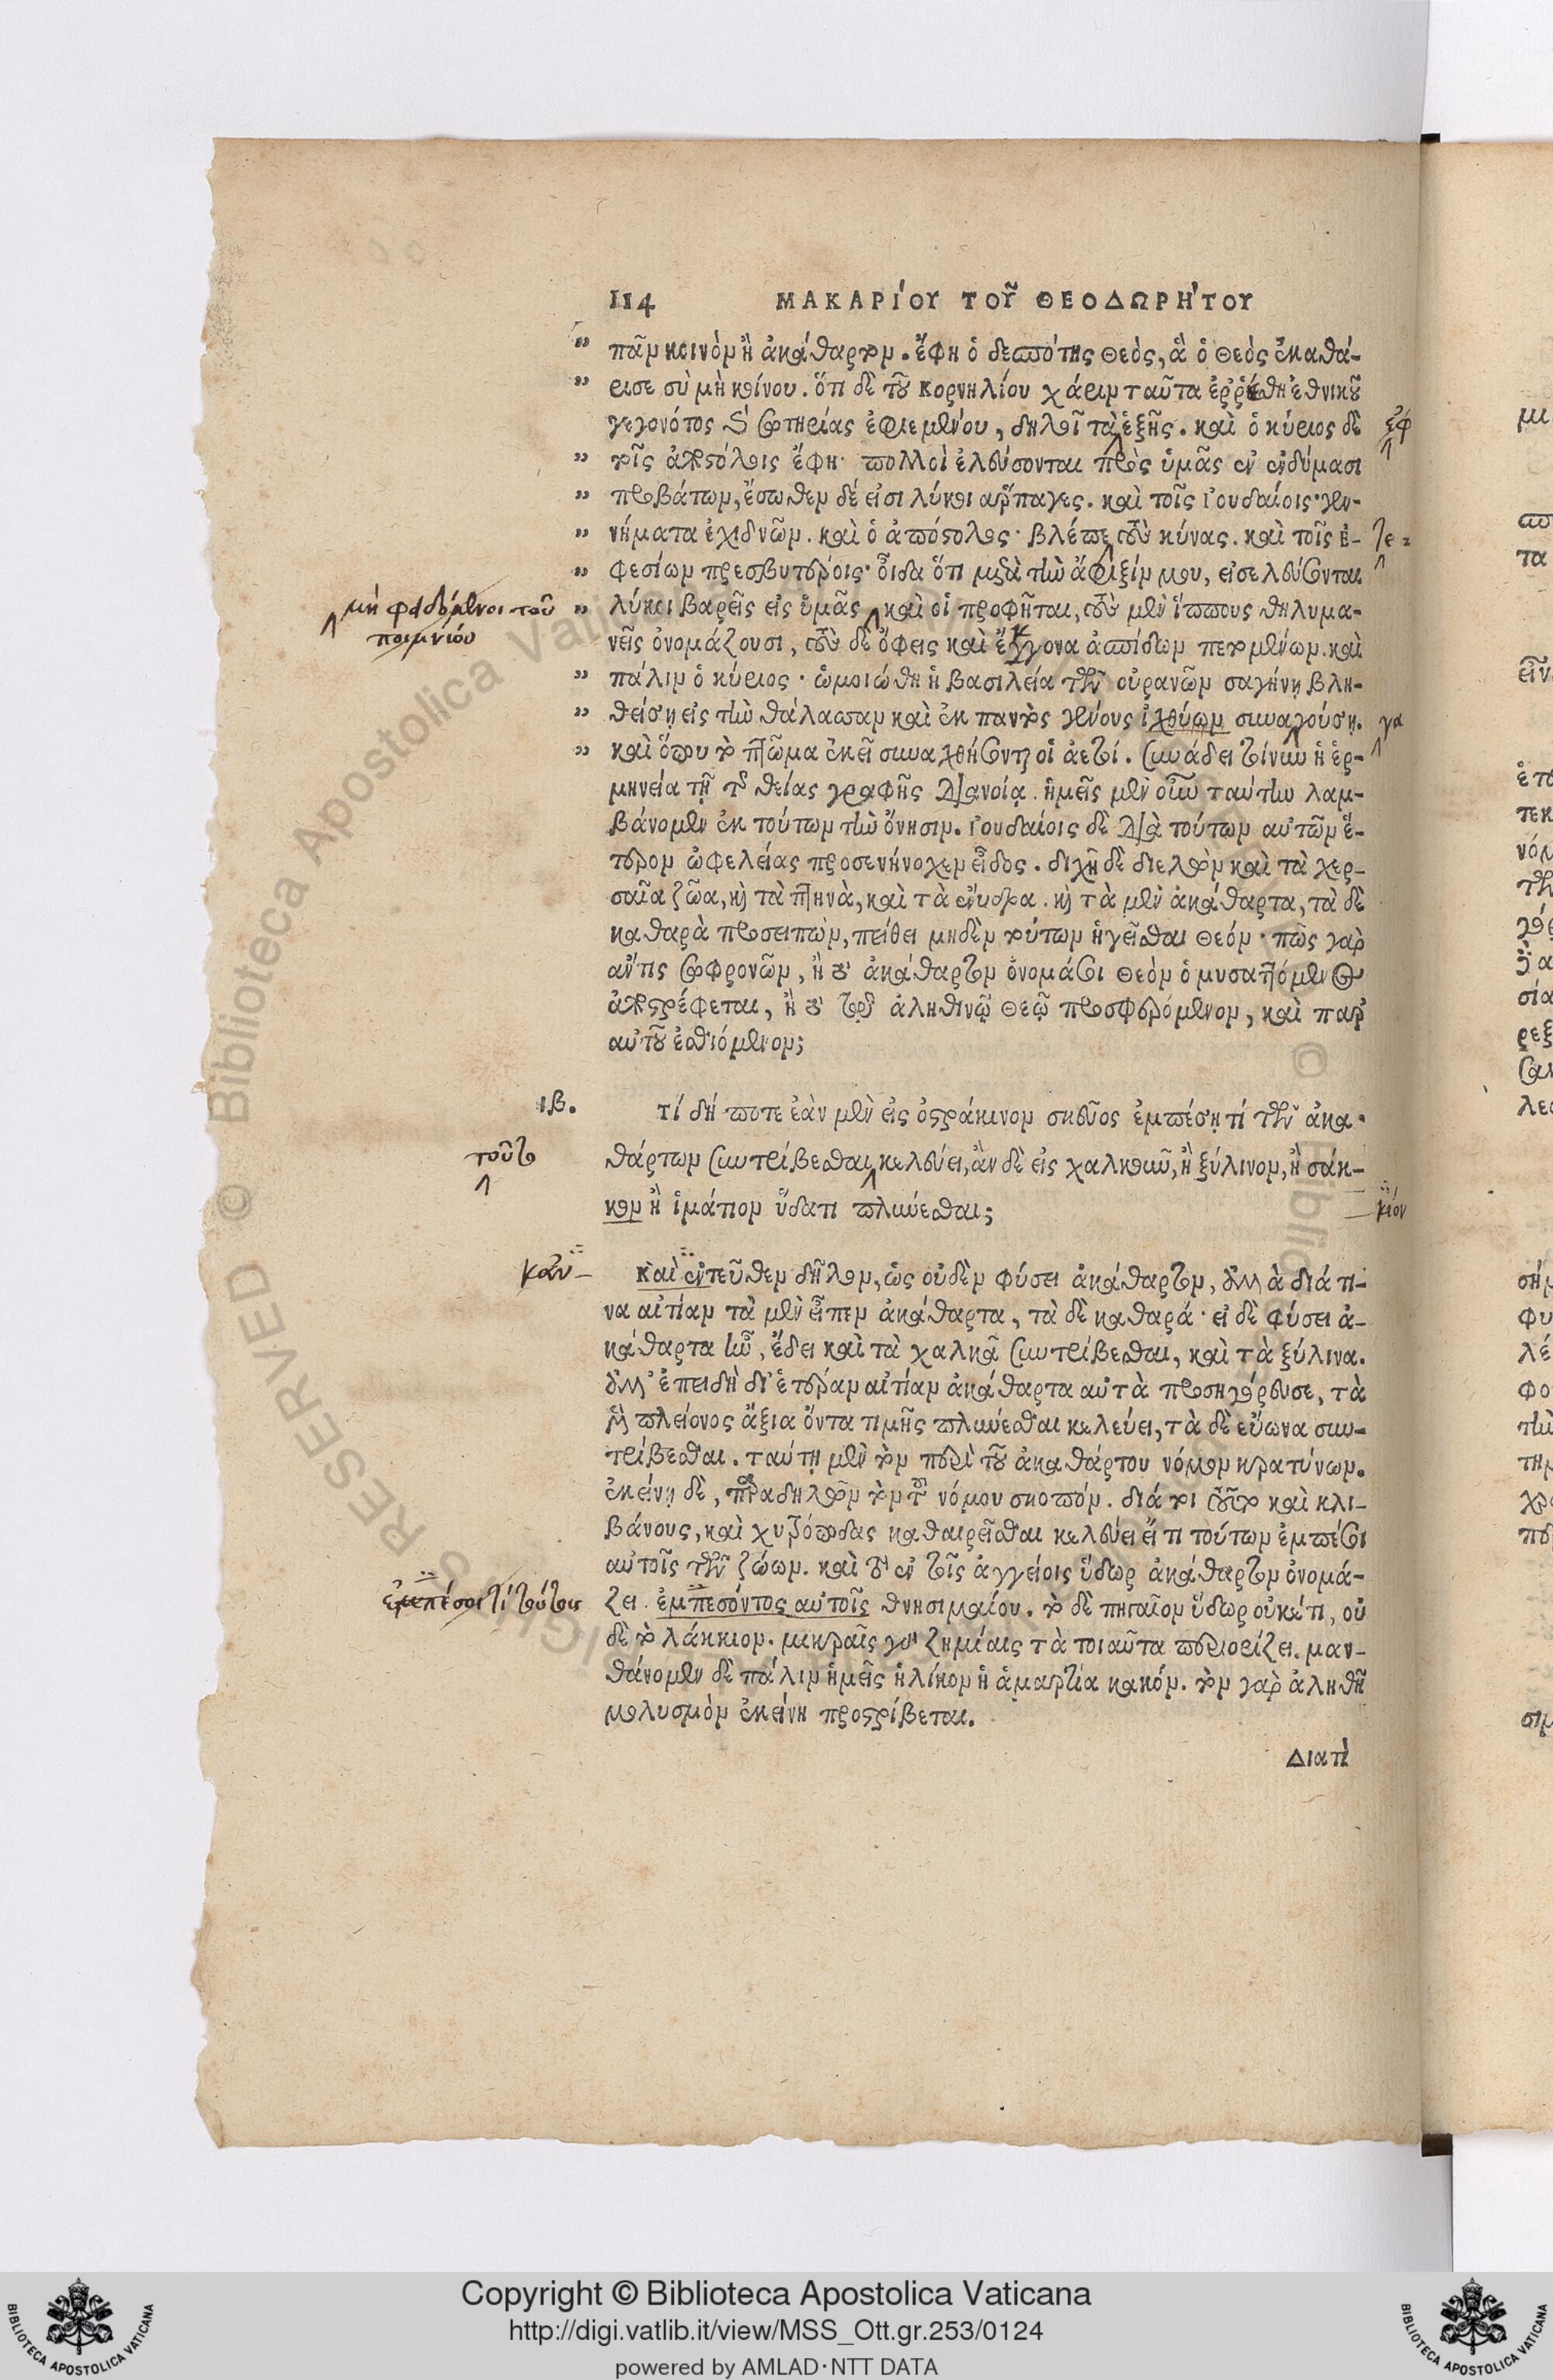 114 ΜΑΚΑΡίΟΥ ΤΟῦ ΘΕΟΔΩΡΗ΄ΤΟΥ
" πᾶν κοινὸν ἢ ἀκάθαρτον. ἔφη ὁ δεσπότης θεὸς, ἃ ὁ θεὸς ἐκαθά-
" ρισε σὺ μὴ κοίνου. ὅτι δὲ τοῦ κορνηλίου χάριν ταῦτα ἐῤῥέθη ἐθνικοῦ
γεγονότος καὶ σωτηρίας ἐφιεμένου, δηλοῖ τὰ ἑξῆς. καὶ ὁ κύριος δὲ ἐφ
" τοῖς ἀποστόλοις ἔφη· πολλοὶ ἐλεύσονται πρὸς ὑμᾶς ἐν ἐνδύμασι
" προβάτων, ἔσωθεν δέ εἰσι λύκοι ἅρπαγες. καὶ τοῖς ἰουδαίοις· γεν-
" νήματα ἐχιδνῶν. καὶ ὁ ἀπόστολος· βλέπε τοὺς κύνας. καὶ τοῖς ἐ- τε
" φεσίων πρεσβυτέροις· οἶδα ὅτι μετὰ τὴν ἄφιξίν μου, εἰσελεύσονται
μὴ φειδόμενοι τοῦ
ποιμνίου
" λύκοι βαρεῖς εἰς ὑμᾶς καὶ οἱ προφῆται, τοὺς μὲν ἵππους θηλυμα-
νεῖς ὀνομάζουσι, τοὺς δὲ ὄφεις καὶ ἔγγονα ἀσπίδων πετομένων. καὶ
" πάλιν ὁ κύριος· ὡμοιώθη ἡ βασιλεία τῶν οὐρανῶν σαγήνῃ βλη-
" θείσῃ εἰς τὴν θάλασσαν καὶ ἐκ παντὸς γένους ἰχθύων συναγούσῃ. γα
" καὶ ὅπου τὸ πτῶμα ἐκεῖ συναχθήσονται οἱ ἀετοί. συνᾴδει τοίνυν ἡ ἑρ-
μηνεία τῇ τῆς θείας γραφῆς διανοίᾳ. ἡμεῖς μὲν οὖν ταύτην λαμ-
βάνομεν ἐκ τούτων τὴν ὄνησιν. ἰουδαίοις δὲ διὰ τούτων αὐτῶν ἕ-
τερον ὠφελείας προσενήνοχεν εἶδος. διχῇ δὲ διελὼν καὶ τὰ χερ-
σαῖα ζῶα, καὶ τὰ πτηνὰ, καὶ τὰ ἔνυδρα. καὶ τὰ μὲν ἀκάθαρτα, τὰ δὲ
καθαρὰ προσειπὼν, πείθει μηδὲν τούτων ἡγεῖσθαι θεόν· πῶς γὰρ
ἄν τις σωφρονῶν, ἢ τὸ ἀκάθαρτον ὀνομάσοι θεὸν ὁ μυσαττόμενος
ἀποστρέφεται, ἢ τὸ τῷ ἀληθινῷ θεῷ προσφερόμενον, καὶ παρ'
αὐτοῦ ἐσθιόμενον;
ιβ. τί δή ποτε ἐὰν μὲν εἰς ὀστράκινον σκεῦος ἐμπέσῃ τί τῶν ἀκα-
τοῦτο
θάρτων συντρίβεσθαι κελεύει, ἂν δὲ εἰς χαλκοῦν, ἢ ξύλινον, ἢ σάκ-
κον ἢ ἱμάτιον ὕδατι πλύνεσθαι; κίον
κἀν
καὶ ἐντεῦθεν δῆλον, ὡς οὐδὲν φύσει ἀκάθαρτον, ἀλλὰ διά τι-
να αἰτίαν τὰ μὲν εἶπεν ἀκάθαρτα, τὰ δὲ καθαρά· εἰ δὲ φύσει ἀ-
κάθαρτα ἦν, ἔδει καὶ τὰ χαλκᾶ συντρίβεσθαι, καὶ τὰ ξύλινα.
ἀλλ' ἐπειδὴ δι' ἑτέραν αἰτίαν ἀκάθαρτα αὐτὰ προσηγόρευσε, τὰ
μὲν πλείονος ἄξια ὄντα τιμῆς πλύνεσθαι κελεύει, τὰ δὲ εὔωνα συν-
τρίβεσθαι. ταύτῃ μὲν τὸν περὶ τοῦ ἀκαθάρτου νόμον κρατύνων.
ἐκείνῃ δὲ, παραδηλῶν τὸν τοῦ νόμου σκοπόν. διά τοι τοῦτο καὶ κλι-
βάνους, καὶ χυτρόποδας καθαιρεῖσθαι κελεύει εἴ τι τούτων ἐμπέσοι
αὐτοῖς τῶν ζώων. καὶ τὸ ἐν τοῖς ἀγγείοις ὕδωρ ἀκάθαρτον ὀνομά-
ἐμπέσοι τί τούτοις
ζει. ἐμπεσόντος αὐτοῖς θνησιμαίου. τὸ δὲ πηγαῖον ὕδωρ οὐκέτι, οὐ
δὲ τὸ λάκκιον. μικραῖς γὰρ ζημίαις τὰ τοιαῦτα περιορίζει. μαν-
θάνομεν δὲ πάλιν ἡμεῖς ἡλίκον ἡ ἁμαρτία κακόν. τὸν γὰρ ἀληθῆ
μολυσμὸν ἐκείνη προστρίβεται.
Διατὶ
© Biblioteca Apostolica Vaticana ALL RIGHTS RESERVED
Copyright © Biblioteca Apostolica Vaticana
http://digi.vatlib.it/view/MSS_Ott.gr.253/0124
powered by AMLAD·NTT DATA
BIBLIOTECA APOSTOLICA VATICANA
BIBLIOTECA APOSTOLICA VATICANA